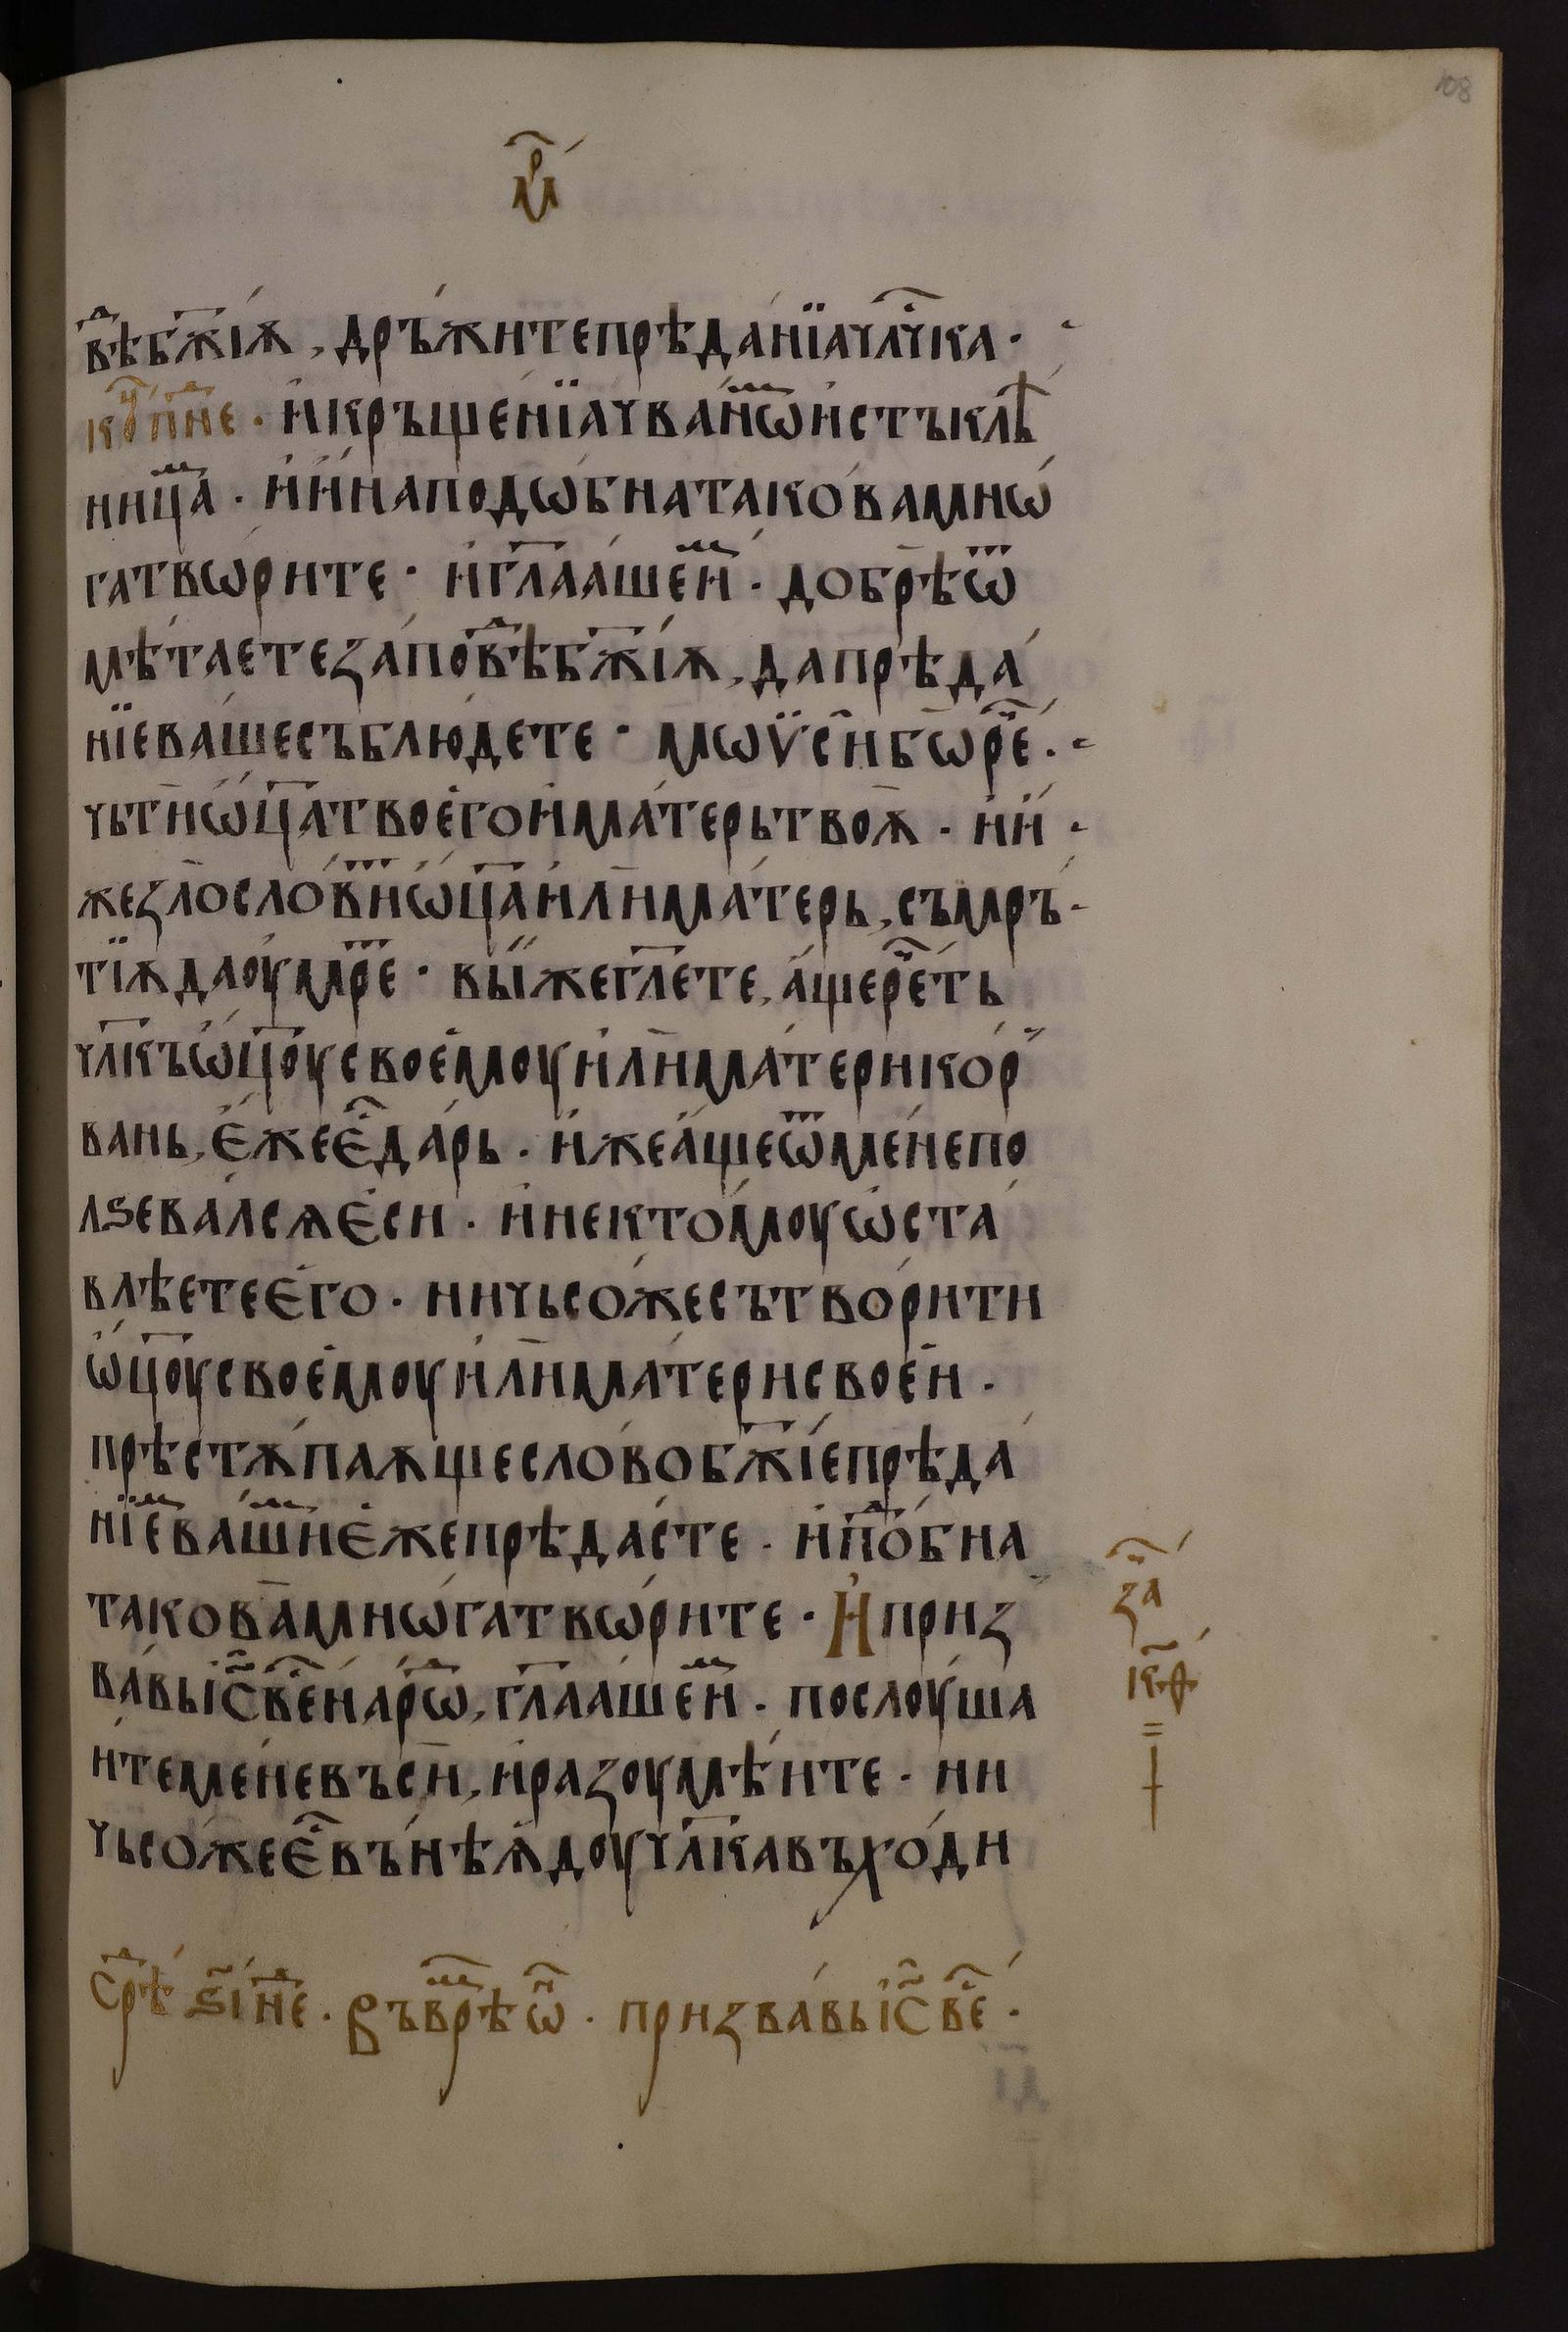 108
мр҃
вⷣѣбж҃їѧ, дръжитепрѣданїачл҃чка·
коⷰ҇ пⷣне · икръщенїачванⷨѡистъклѣ
ницⷨа · ииинаподѡбнатаковамнѡ
гатвѡрите · игл҃аашеⷨн · добрѣѿ
мѣтаетезаповⷣѣбж҃їѧ, дапрѣда
нїевашесъблюдете · мѡѵсибѡрⷱ҇е ·
чьтиѡц҃атвоегоиматерьтвоѫ · ии
жезлословⷮиѡц҃аилиматерь, съмръ
тїѫдаоумрⷮе · выжегл҃ете, ащереⷱ҇ть
чл҃къѡц҃оусвоемоуилиматерикор
вань, ежееⷭ҇дарь · ижеащеѿменепо
лѕевалсѧеси · инектомоуѡста
влѣетеего · ничьсожесътворити
ѡц҃оусвоемоуилиматерисвоеи ·
прѣстѫпаѫщесловобж҃їепрѣда
нїеⷨвашⷨиежепрѣдасте · ипоⷣбна
таковамнѡгатвѡрите · Иприз
вавыІ҃Свеⷭ҇нарѡⷣ, гл҃аашеⷨн · послоуша
итеменевъси, иразоумѣите · ни
чьсожееⷭ҇вънѣѫдоучл҃кавъходи
за
к҃ѳ
срⷣѣ ѕ҃і неⷣ · Въврⷨѣѡн · призвавыІ҃Свеⷭ҇ ·